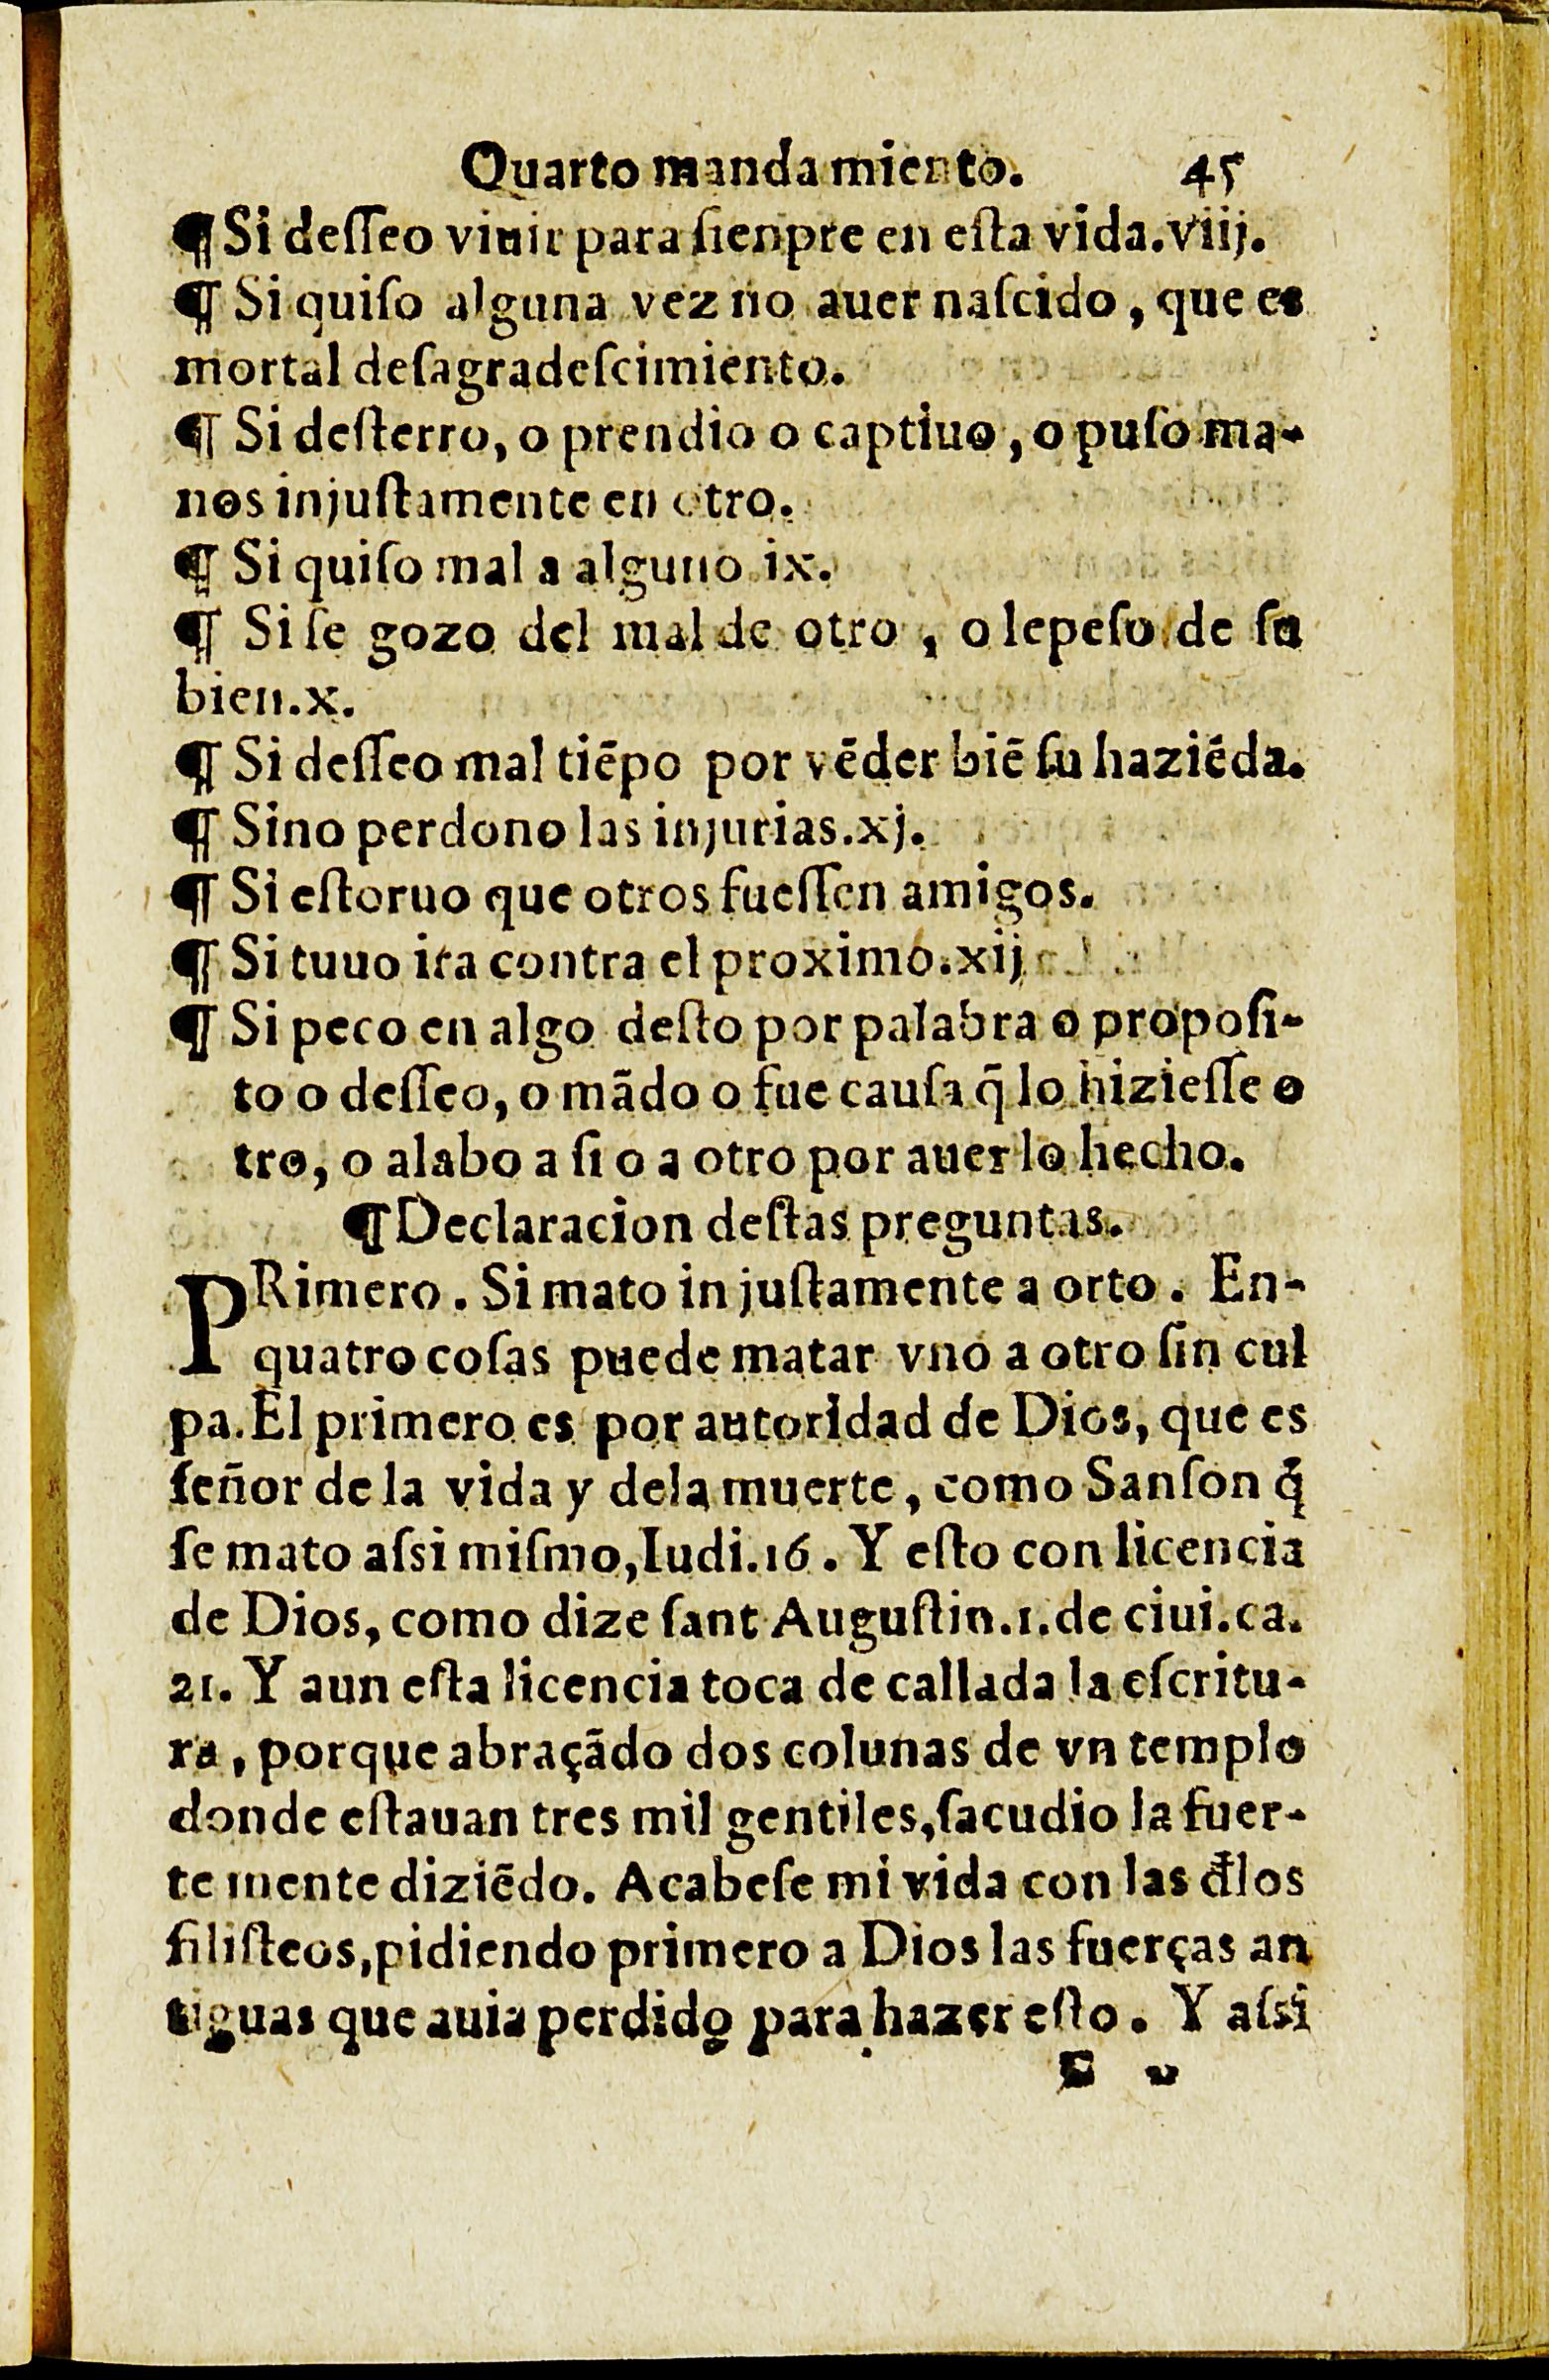 Quarto mandamiento. 45
¶ Si deſſeo viuir para ſienpre en eſta vida.viij.
¶ Si quiſo alguna vez no auer naſcido, que es
mortal deſagradeſcimiento.
¶ Si deſterro, o prendio o captiuo, o puſo ma-
nos injuſtamente en otro.
¶ Si quiſo mal a alguno ix.
¶ Si ſe gozo del mal de otro, o lepeſo de ſu
bien.x.
¶ Si deſſeo mal tiēpo por vēder biē ſu haziēda.
¶ Sino perdono las injurias.xj.
¶ Si eſtoruo que otros fueſſen amigos.
¶ Si tuuo ira contra el proximo.xij
¶ Si peco en algo deſto por palabra o propoſi-
to o deſſeo, o mãdo o fue cauſa q̃ lo hizieſſe o
tro, o alabo a ſi o a otro por auer lo hecho.
¶ Declaracion deſtas preguntas.
PRimero. Si mato injuſtamente a orto. En-
quatro coſas puede matar vno a otro ſin cul
pa. El primero es por autoridad de Dios, que es
ſeñor de la vida y dela muerte, como Sanſon q̃
ſe mato aſsi miſmo, Iudi.16. Y eſto con licencia
de Dios, como dize ſant Auguſtin.1.de ciui.ca.
21. Y aun eſta licencia toca de callada la eſcritu-
ra, porque abraçãdo dos colunas de vn templo
donde eſtauan tres mil gentiles, ſacudio la fuer-
te mente diziēdo. Acabeſe mi vida con las đlos
filiſteos, pidiendo primero a Dios las fuerças an
tiguas que auia perdido para hazer eſto. Y aſsi